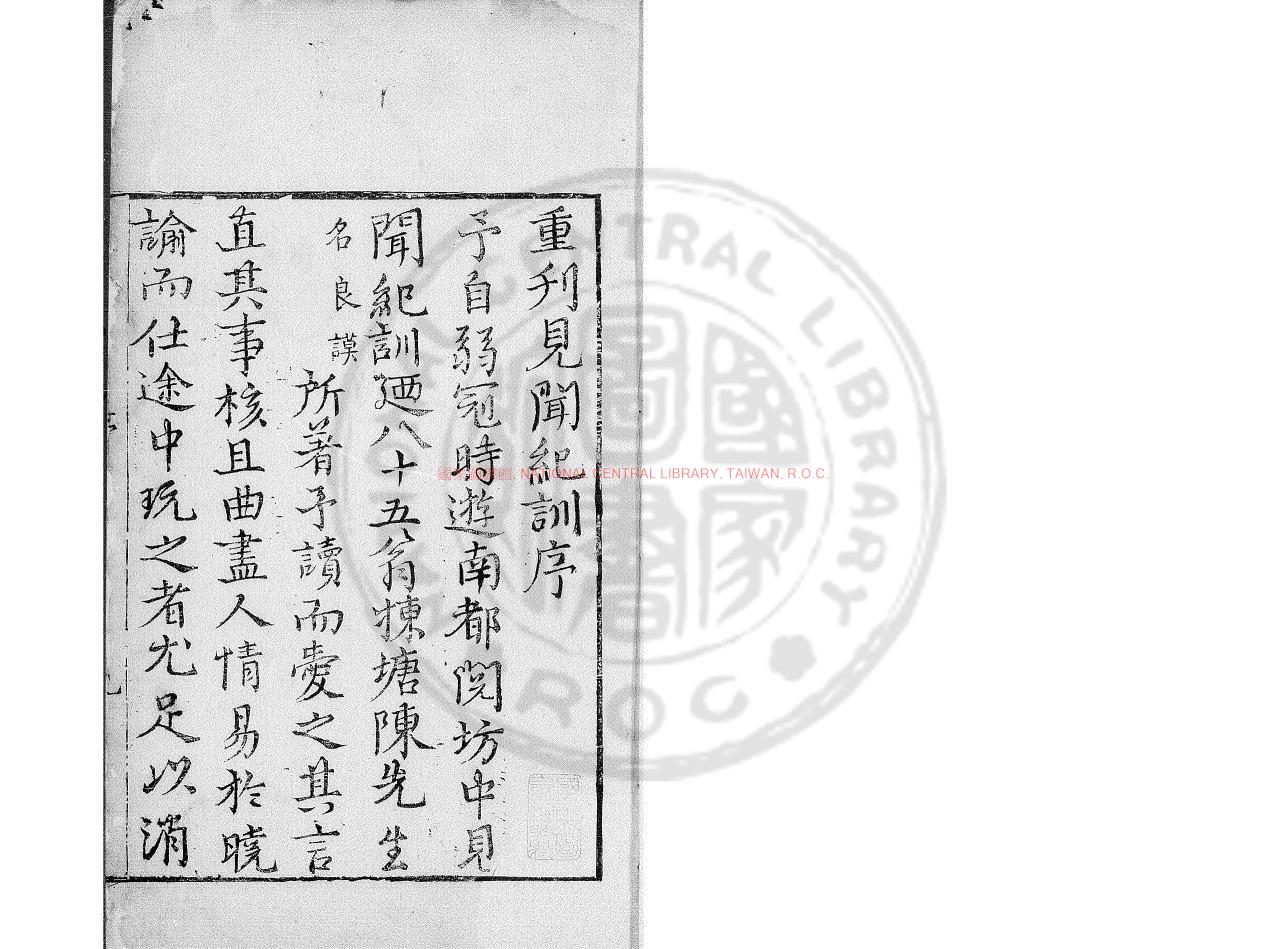 重刋見聞紀訓序
予自弱冠時遊南都閱坊中見
聞紀訓廼八十五翁棟塘陳先生
名良謨所著予讀而愛之其言
直其事核且曲盡人情易於曉
諭而仕途中玩之者尤足以消
NATIONAL CENTRAL LIBRARY, TAIWAN, R.O.C.
CENTRAL LIBRARY
R O C